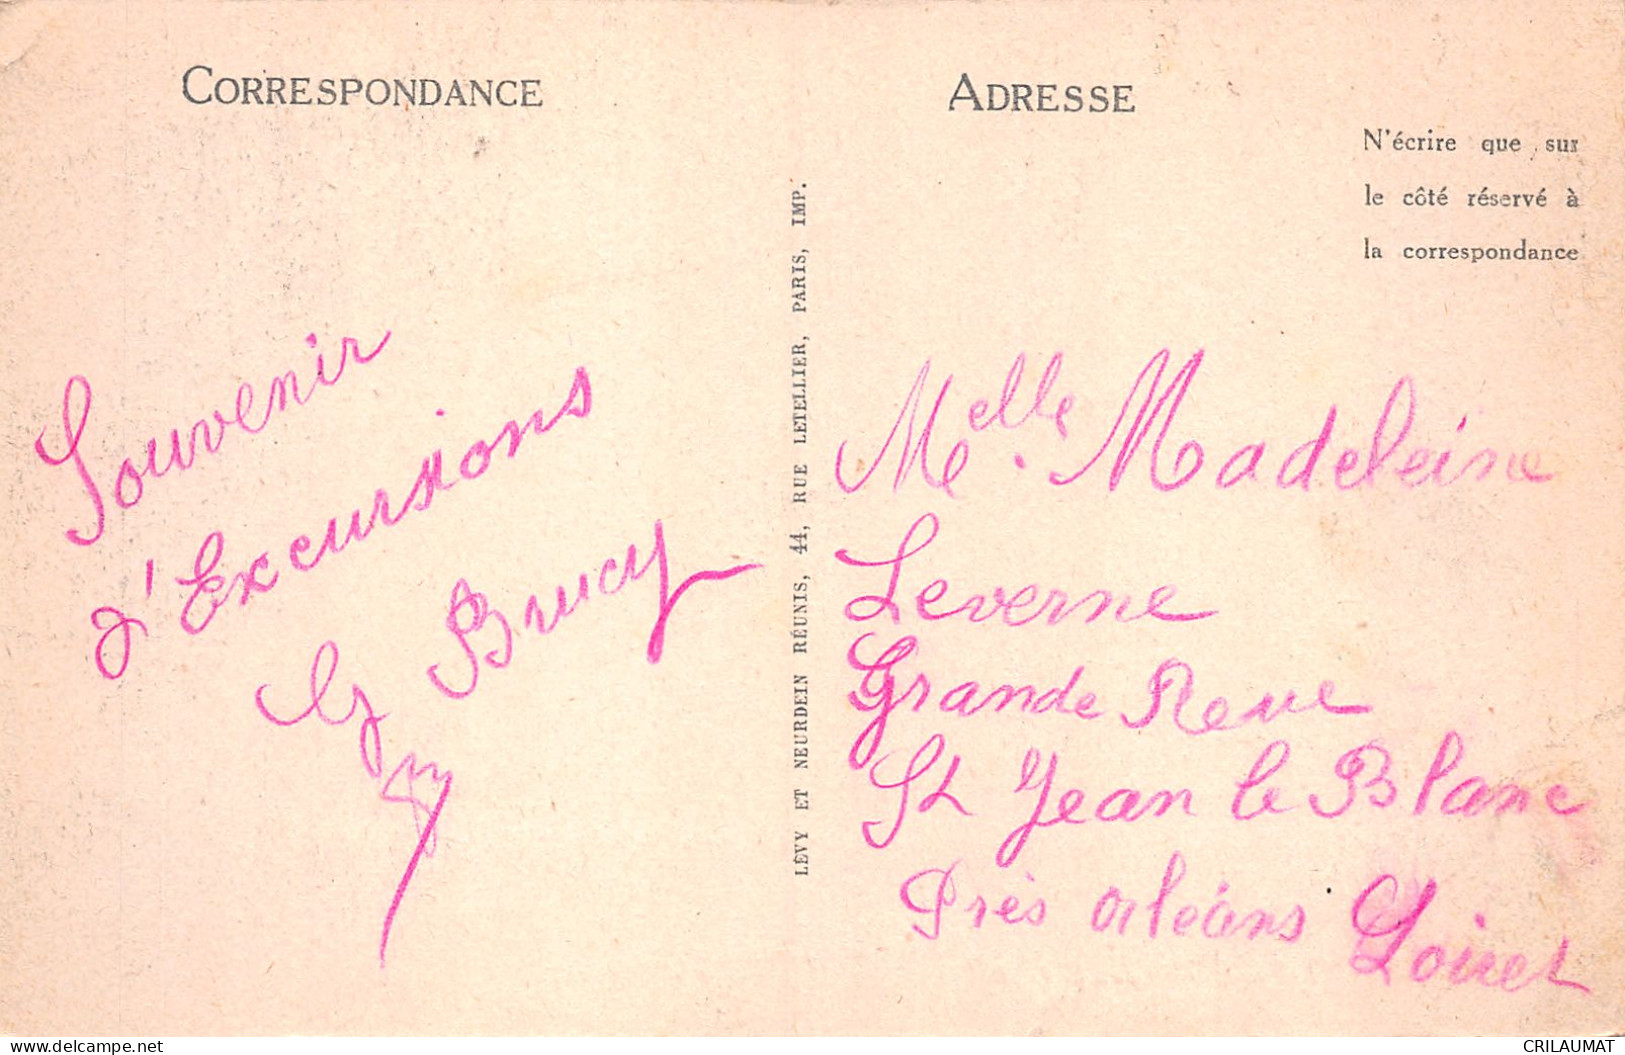 CORRESPONDANCE
Souvenir
d'Excursions
G Brucy
LÉVY ET NEURDEIN RÉUNIS, 44, RUE LETELLIER, PARIS, IMP.
ADRESSE
N'écrire que sur
le côté réservé à
la correspondance
Melle. Madeleine
Leverne
Grande Reue
St Jean le Blanc
Près Orléans Loiret
www.delcampe.net
CRILAUMAT